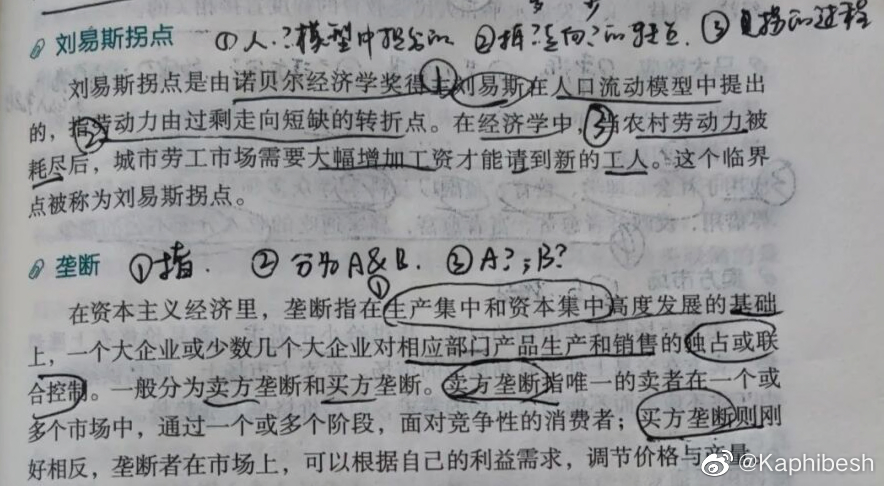 刘易斯拐点 ①人口模型中提出的 ②指
刘易斯拐点是由诺贝尔经济学奖得主刘易斯在人口流动模型中提出
的，指劳动力由过剩走向短缺的转折点。在经济学中，当农村劳动力被
耗尽后，城市劳工市场需要大幅增加工资才能请到新的工人。这个临界
点被称为刘易斯拐点。
垄断 ①指. ②分为A&B. ③A?;B?
在资本主义经济里，垄断指在生产集中和资本集中高度发展的基础
上，一个大企业或少数几个大企业对相应部门产品生产和销售的独占或联
合控制。一般分为卖方垄断和买方垄断。卖方垄断指唯一的卖者在一个或
多个市场中，通过一个或多个阶段，面对竞争性的消费者；买方垄断则刚
好相反，垄断者在市场上，可以根据自己的利益需求，调节价格与产量。
@Kaphibesh